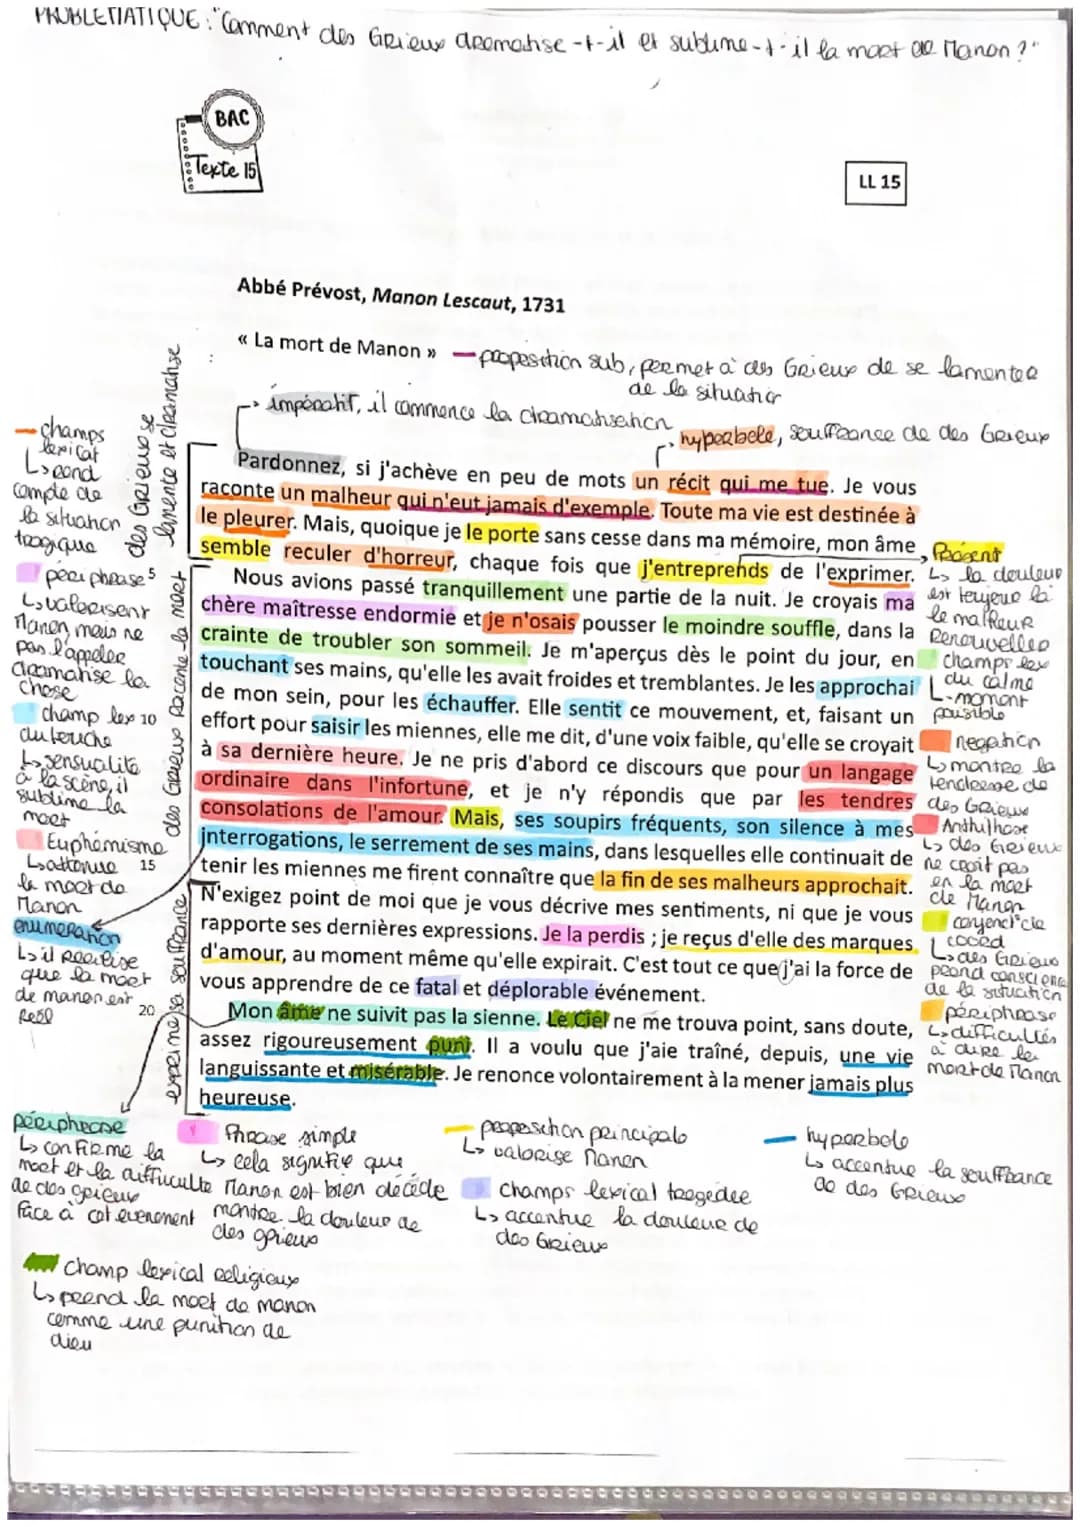 PROBLEMATIQUE : "Comment des Grieux dramatise-t-il et sublime-t-il la mort de Manon ?"
BAC
Texte 15
LL 15
Abbé Prévost, Manon Lescaut, 1731
« La mort de Manon »
proposition sub, permet à des Grieux de se lamenter
de la situation
impératif, il commence la dramatisation
hyperbole, souffrance de des Grieux
des Grieux se
lamente et dramatise
des Grieux raconte la mort
exprime sa souffrance
Pardonnez, si j'achève en peu de mots un récit qui me tue. Je vous
raconte un malheur qui n'eut jamais d'exemple. Toute ma vie est destinée à
le pleurer. Mais, quoique je le porte sans cesse dans ma mémoire, mon âme
semble reculer d'horreur, chaque fois que j'entreprends de l'exprimer.
Nous avions passé tranquillement une partie de la nuit. Je croyais ma
chère maîtresse endormie et je n'osais pousser le moindre souffle, dans la
crainte de troubler son sommeil. Je m'aperçus dès le point du jour, en
touchant ses mains, qu'elle les avait froides et tremblantes. Je les approchai
de mon sein, pour les échauffer. Elle sentit ce mouvement, et, faisant un
effort pour saisir les miennes, elle me dit, d'une voix faible, qu'elle se croyait
à sa dernière heure. Je ne pris d'abord ce discours que pour un langage
ordinaire dans l'infortune, et je n'y répondis que par les tendres
consolations de l'amour. Mais, ses soupirs fréquents, son silence à mes
interrogations, le serrement de ses mains, dans lesquelles elle continuait de
tenir les miennes me firent connaître que la fin de ses malheurs approchait.
N'exigez point de moi que je vous décrive mes sentiments, ni que je vous
rapporte ses dernières expressions. Je la perdis ; je reçus d'elle des marques
d'amour, au moment même qu'elle expirait. C'est tout ce que j'ai la force de
vous apprendre de ce fatal et déplorable événement.
Mon âme ne suivit pas la sienne. Le Ciel ne me trouva point, sans doute,
assez rigoureusement puni. Il a voulu que j'aie traîné, depuis, une vie
languissante et misérable. Je renonce volontairement à la mener jamais plus
heureuse.
5
10
15
20
champs
lexical
↳ rend
compte de
la situation
tragique
périphrase
↳ valorisent
Manon, mais ne
pas l'appeler
dramatise la
chose
champ lex
du touché
↳ sensualité
à la scène, il
sublime la
mort
Euphémisme
↳ atténue
la mort de
Manon
enumération
↳ il réalise
que la mort
de manon est
réel
Présent
↳ la douleur
est toujours là
le malheur
renouvellée
champs lex
du calme
↳ moment
paisible
negation
↳ montre la
tendresse de
des Grieux
Antithèse
↳ des Grieux
ne croit pas
en la mort
de Manon
conjonct° de
coord
↳ des Grieux
prend conscience
de la situation
périphrase
↳ difficultés
à dire la
mort de Manon
périphrase
↳ confirme la
mort et la difficulté
de des grieux
face à cet évenement
Phrase simple
↳ cela signifie que
Manon est bien décédé
montre la douleur de
des grieux
proposition principale
↳ valorise Manon
champs lexical tragédie
↳ accentue la douleur de
des Grieux
hyperbole
↳ accentue la souffrance
de des Grieux
champ lexical religieux
↳ prend la mort de manon
comme une punition de
dieu